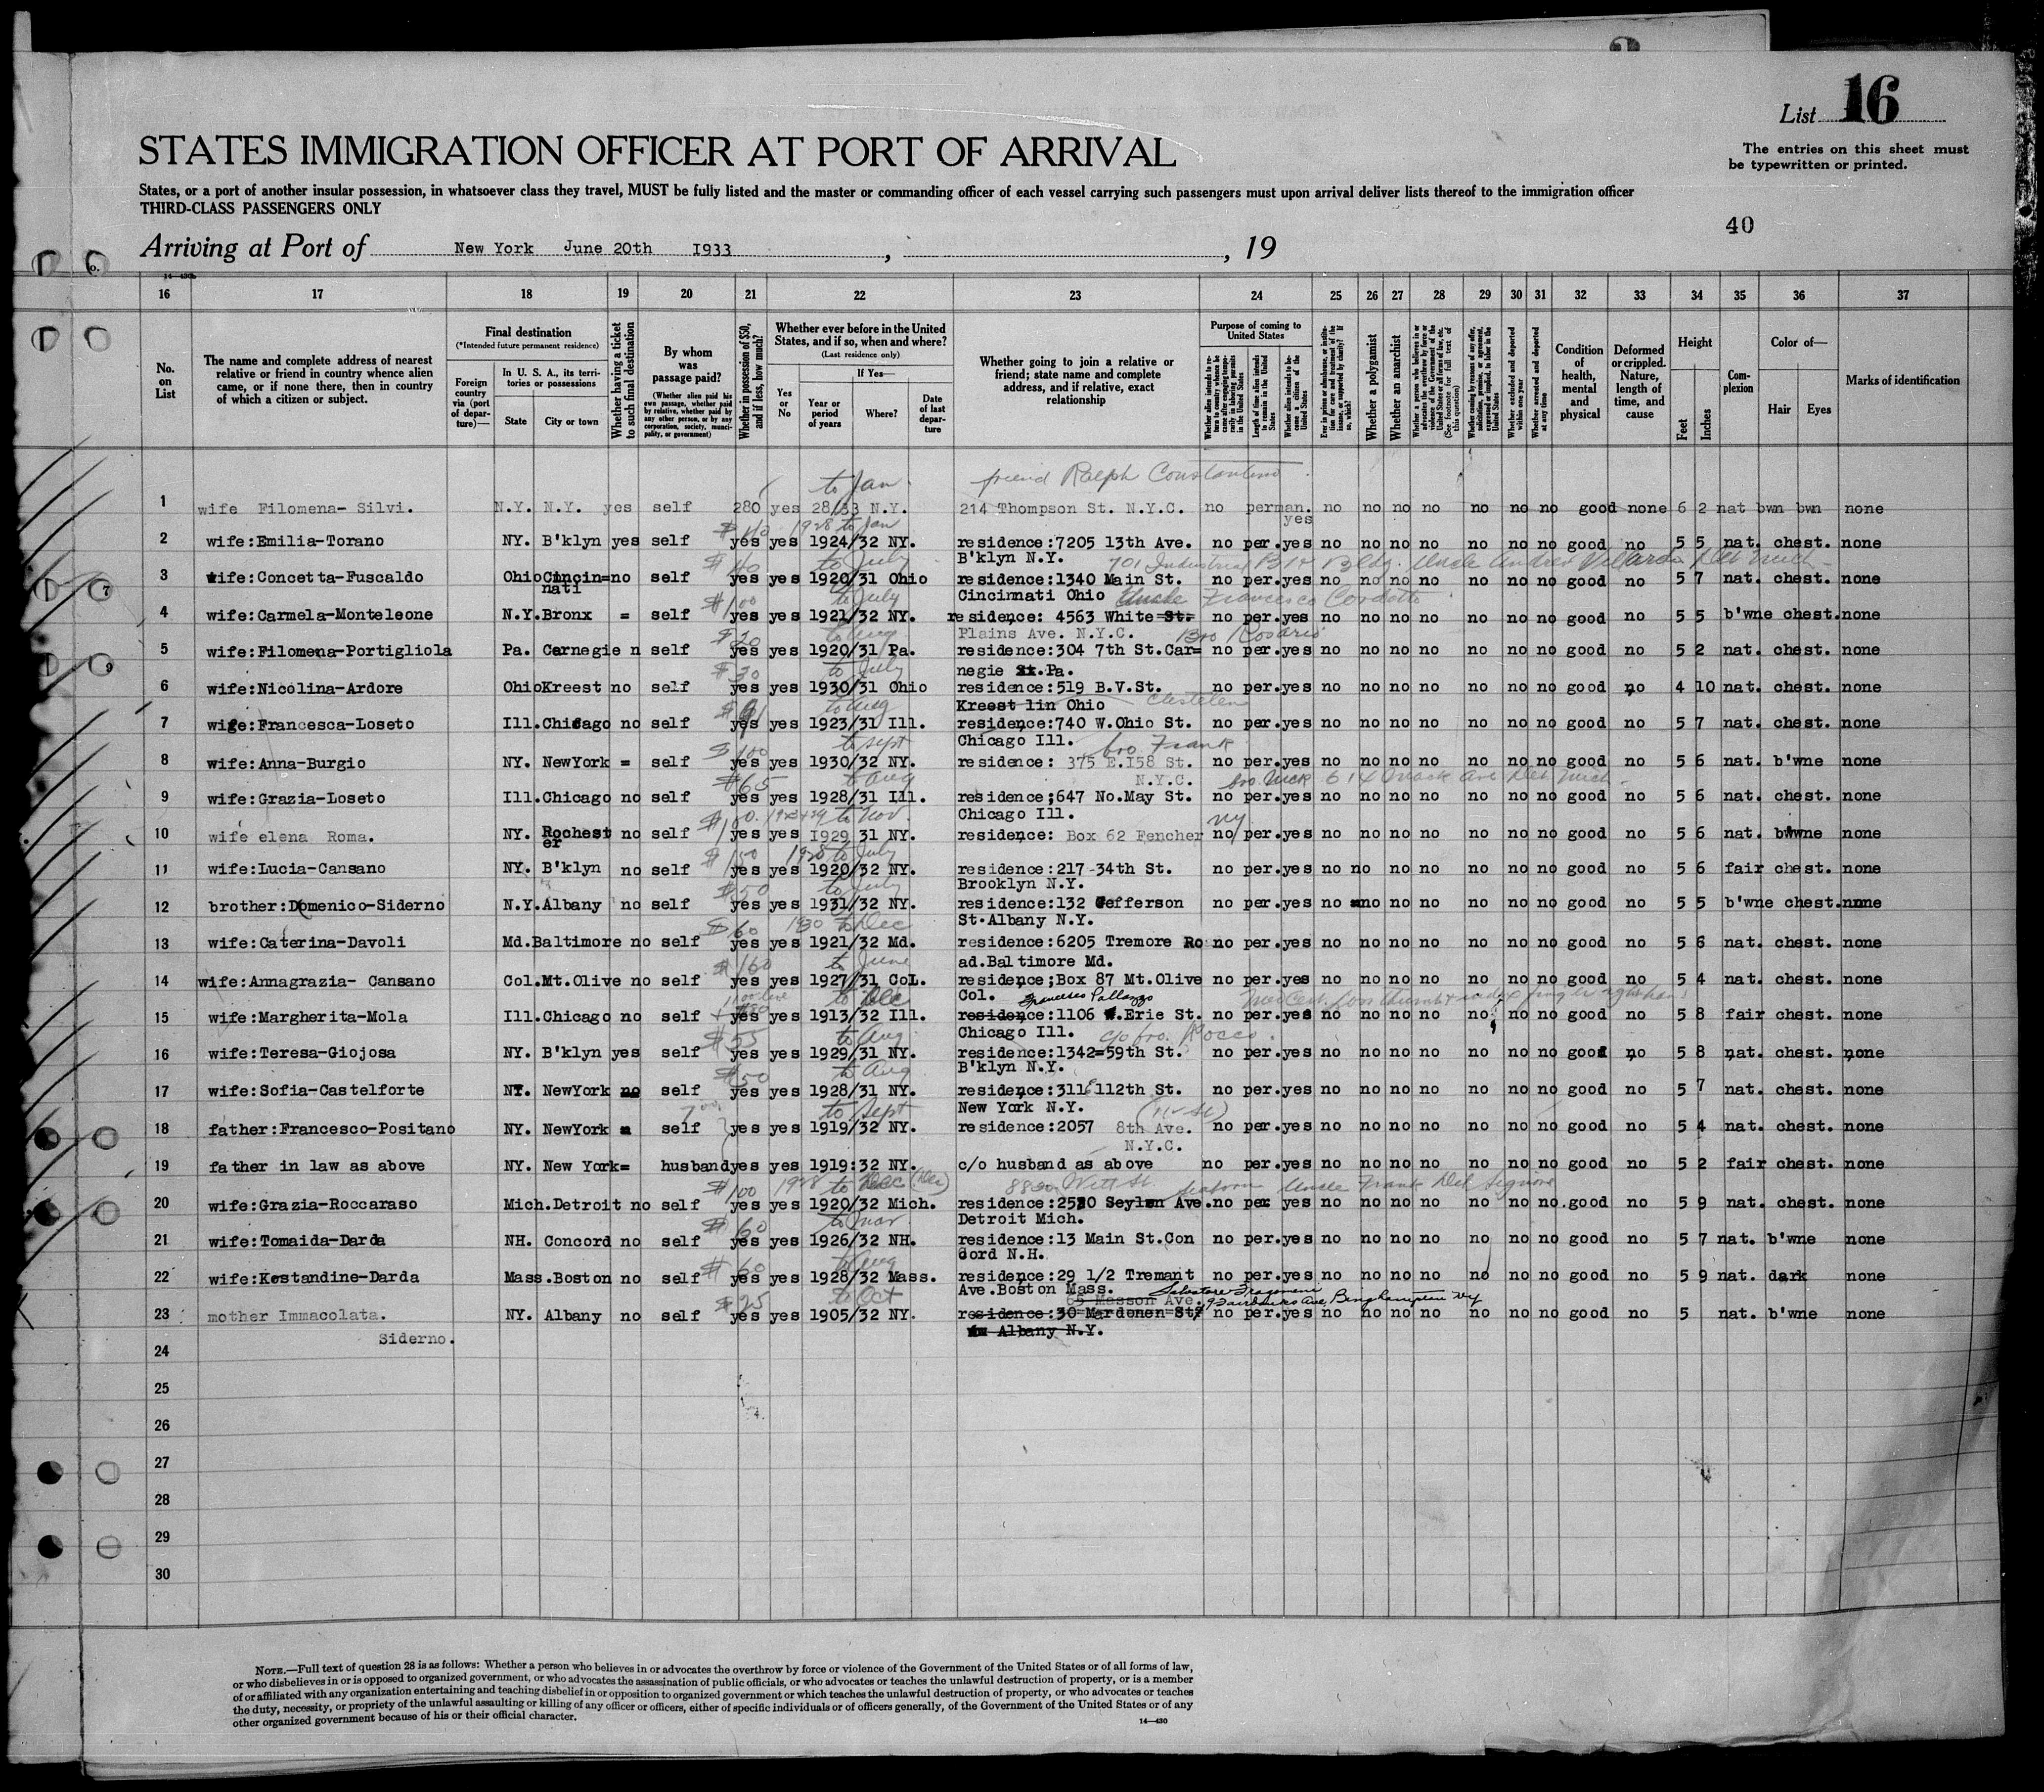 List 16
The entries on this sheet must
be typewritten or printed.
STATES IMMIGRATION OFFICER AT PORT OF ARRIVAL
States, or a port of another insular possession, in whatsoever class they travel, MUST be fully listed and the master or commanding officer of each vessel carrying such passengers must upon arrival deliver lists thereof to the immigration officer
THIRD-CLASS PASSENGERS ONLY
40
Arriving at Port of New York June 20th 1933, , 19
16 17 18 19 20 21 22 23 24 25 26 27 28 29 30 31 32 33 34 35 36 37
No. on List
The name and complete address of nearest relative or friend in country whence alien came, or if none there, then in country of which a citizen or subject.
Final destination
(*Intended future permanent residence)
Foreign country via (port of departure)—
In U. S. A., its territories or possessions
State
City or town
Whether having a ticket to such final destination
By whom was passage paid?
(Whether alien paid his own passage, whether paid by relative, whether paid by any other person, or by any corporation, society, municipality, or government)
Whether in possession of $50, and if less, how much?
Whether ever before in the United States, and if so, when and where?
(Last residence only)
Yes or No
If Yes—
Year or period of years
Where?
Date of last departure
Whether going to join a relative or friend; state name and complete address, and if relative, exact relationship
Purpose of coming to United States
Length of time alien intends to remain in the United States
Whether alien intends to become a citizen of the United States
Whether a polygamist
Whether an anarchist
Whether excluded and deported within one year
Whether arrested and deported at any time
Condition of health, mental and physical
Deformed or crippled. Nature, length of time, and cause
Height
Feet
Inches
Complexion
Color of—
Hair
Eyes
Marks of identification
to Jan friend Ralph Constantino
1 wife Filomena- Silvi. N.Y. N.Y. yes self 280 yes 28/33 N.Y. 214 Thompson St. N.Y.C. no perman. yes no no no no no no no good none 6 2 nat bwn bwn none
1928 to Jan
2 wife:Emilia-Torano NY. B'klyn yes self yes yes 1924/32 NY. residence:7205 13th Ave. no per.yes no no no no no no no good no 5 5 nat. chest. none
to July B'klyn N.Y. 701 Industrial Bldg. Uncle Andrew
3 wife:Concetta-Fuscaldo Ohio Cincin=nati no self yes yes 1920/31 Ohio residence:1340 Main St. no per.yes no no no no no no no good no 5 7 nat. chest. none
$100 to July Cincinnati Ohio Uncle Francesco
4 wife:Carmela-Monteleone N.Y. Bronx = self yes yes 1921/32 NY. residence: 4563 White St. no per.yes no no no no no no no good no 5 5 b'wne chest. none
$20 to Aug Plains Ave. N.Y.C. Bro Rosario
5 wife:Filomena-Portigliola Pa. Carnegie n self yes yes 1920/31 Pa. residence:304 7th St.Car= no per.yes no no no no no no no good no 5 2 nat. chest. none
to July negie St.Pa.
6 wife:Nicolina-Ardore Ohio Kreest no self yes yes 1930/31 Ohio residence:519 B.V.St. no per.yes no no no no no no no good no 4 10 nat. chest. none
to Aug Kreest lin Ohio
7 wige:Francesca-Loseto Ill. Chicago no self yes yes 1923/31 Ill. residence:740 W.Ohio St. no per.yes no no no no no no no good no 5 7 nat. chest. none
$100 to Sept Chicago Ill. bro Frank
8 wife:Anna-Burgio NY. NewYork = self yes yes 1930/32 NY. residence: 375 E.158 St. no per.yes no no no no no no no good no 5 6 nat. b'wne none
$65 to Aug N.Y.C.
9 wife:Grazia-Loseto Ill. Chicago no self yes yes 1928/31 Ill. residence;647 No.May St. no per.yes no no no no no no no good no 5 6 nat. chest. none
to Nov. Chicago Ill. NY
10 wife elena Roma. NY. Rochester no self yes yes 1929 31 NY. residence: Box 62 Fencher no per.yes no no no no no no no good no 5 6 nat. bwwne none
$150 1928 to July
11 wife:Lucia-Cansano NY. B'klyn no self yes yes 1920/32 NY. residence:217-34th St. no per.yes no no no no no no no good no 5 6 fair chest. none
$50 to July Brooklyn N.Y.
12 brother:Domenico-Siderno N.Y. Albany no self yes yes 1931/32 NY. residence:132 Jefferson no per.yes no no no no no no no good no 5 5 b'wne chest. none
$60 1930 to Dec St.Albany N.Y.
13 wife:Caterina-Davoli Md. Baltimore no self yes yes 1921/32 Md. residence:6205 Tremore Ro no per.yes no no no no no no no good no 5 6 nat. chest. none
$160 to June ad.Baltimore Md.
14 wife:Annagrazia- Cansano Col. Mt.Olive no self yes yes 1927/31 CoL. residence;Box 87 Mt.Olive no per.yes no no no no no no no good no 5 4 nat. chest. none
to Dec Col. Francesco Pallazzo
15 wife:Margherita-Mola Ill. Chicago no self yes yes 1913/32 Ill. residence:1106 W.Erie St. no per.yes no no no no no no no good no 5 8 fair chest. none
$55 to Aug Chicago Ill. c/o bro. Rocco.
16 wife:Teresa-Giojosa NY. B'klyn yes self yes yes 1929/31 NY. residence:1342=59th St. no per.yes no no no no no no no good no 5 8 nat. chest. none
$50 to Aug B'klyn N.Y.
17 wife:Sofia-Castelforte NY. NewYork no self yes yes 1928/31 NY. residence:311E112th St. no per.yes no no no no no no no good no 5 7 nat. chest. none
to Sept New York N.Y.
18 father:Francesco-Positano NY. NewYork = self yes yes 1919/32 NY. residence:2057 8th Ave. no per.yes no no no no no no no good no 5 4 nat. chest. none
N.Y.C.
19 father in law as above NY. New York= husband yes yes 1919:32 NY. c/o husband as above no per.yes no no no no no no no good no 5 2 fair chest. none
$100 1928 to Dec (Dec) Uncle Frank
20 wife:Grazia-Roccaraso Mich. Detroit no self yes yes 1920/32 Mich. residence:2520 Seylen Ave. no per yes no no no no no no no good no 5 9 nat. chest. none
$60 to Mar Detroit Mich.
21 wife:Tomaida-Darda NH. Concord no self yes yes 1926/32 NH. residence:13 Main St.Con no per.yes no no no no no no no good no 5 7 nat. b'wne none
$60 to Aug cord N.H.
22 wife:Kostandine-Darda Mass. Boston no self yes yes 1928/32 Mass. residence:29 1/2 Tremant no per.yes no no no no no no no good no 5 9 nat. dark none
$25 to Oct Ave.Boston Mass.
23 mother Immacolata. NY. Albany no self yes yes 1905/32 NY. residence:30 Mardenen=St. no per.yes no no no no no no no good no 5 nat. b'wne none
Siderno. Albany N.Y.
24
25
26
27
28
29
30
NOTE.—Full text of question 28 is as follows: Whether a person who believes in or advocates the overthrow by force or violence of the Government of the United States or of all forms of law,
or who disbelieves in or is opposed to organized government, or who advocates the assassination of public officials, or who advocates or teaches the unlawful destruction of property, or is a member
of or affiliated with any organization entertaining and teaching disbelief in or opposition to organized government or which teaches the unlawful destruction of property, or who advocates or teaches
the duty, necessity, or propriety of the unlawful assaulting or killing of any officer or officers, either of specific individuals or of officers generally, of the Government of the United States or of any
other organized government because of his or their official character.
14—430